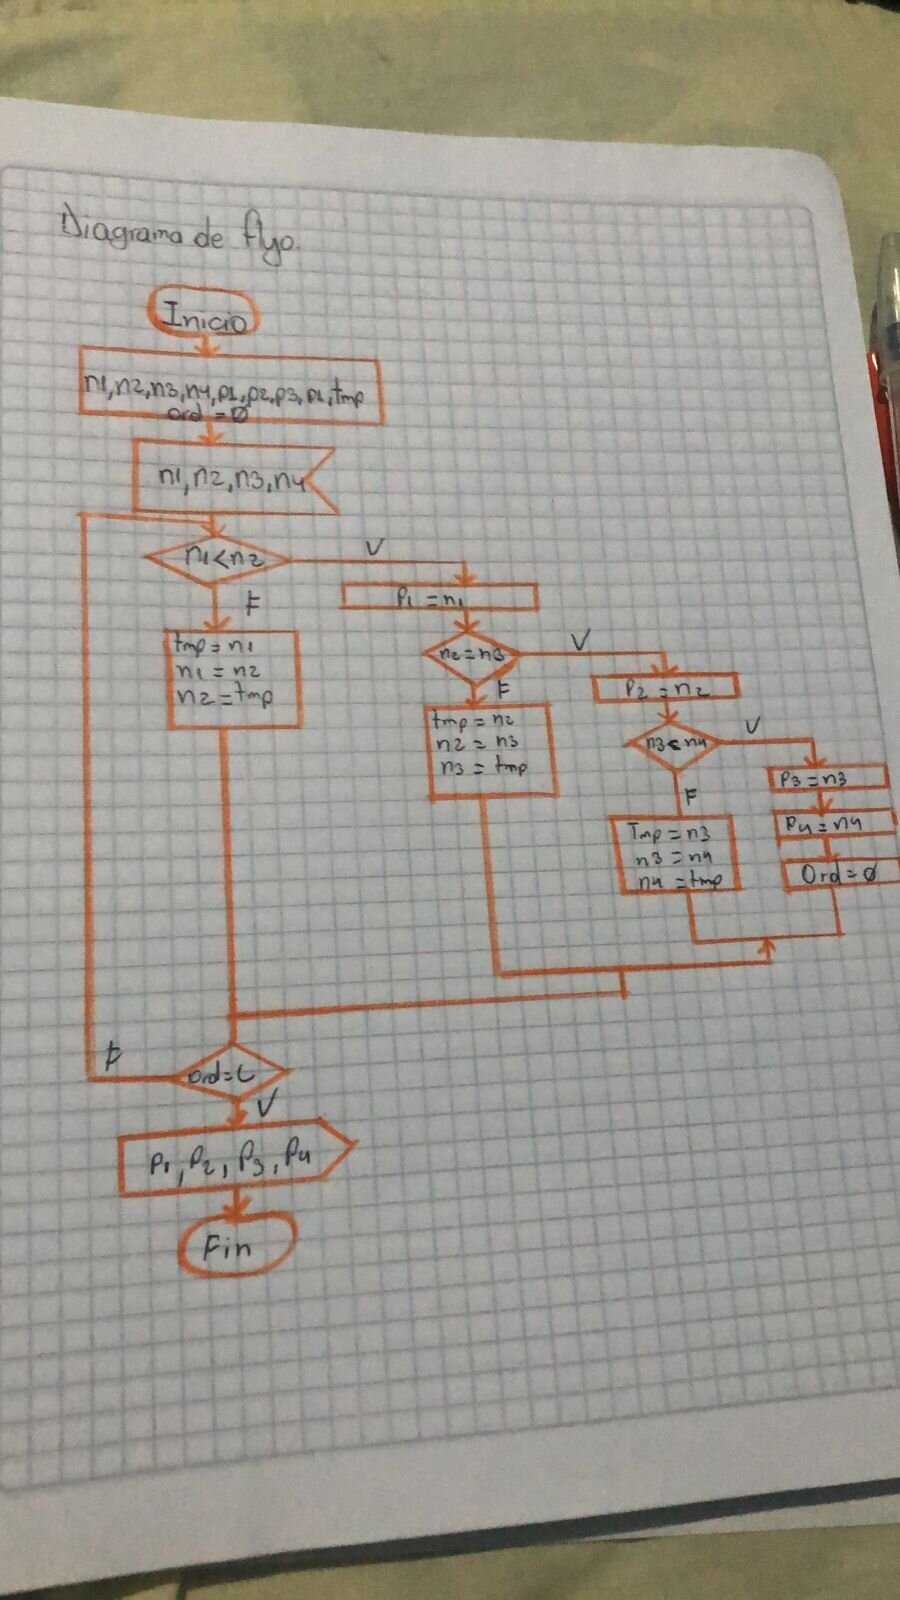 Diagrama de flujo.
Inicio
n1,n2,n3,n4,p1,p2,p3,p1,tmp
ord = 0
n1,n2,n3,n4
n1<n2
V
F
P1 = n1
tmp = n1
n1 = n2
n2 = tmp
n2=n3
V
F
P2 = n2
tmp = n2
n2 = n3
n3 = tmp
n3<n4
V
F
P3 = n3
P4 = n4
Ord = 0
Tmp = n3
n3 = n4
n4 = tmp
F
V
P1, P2, P3, P4
Fin